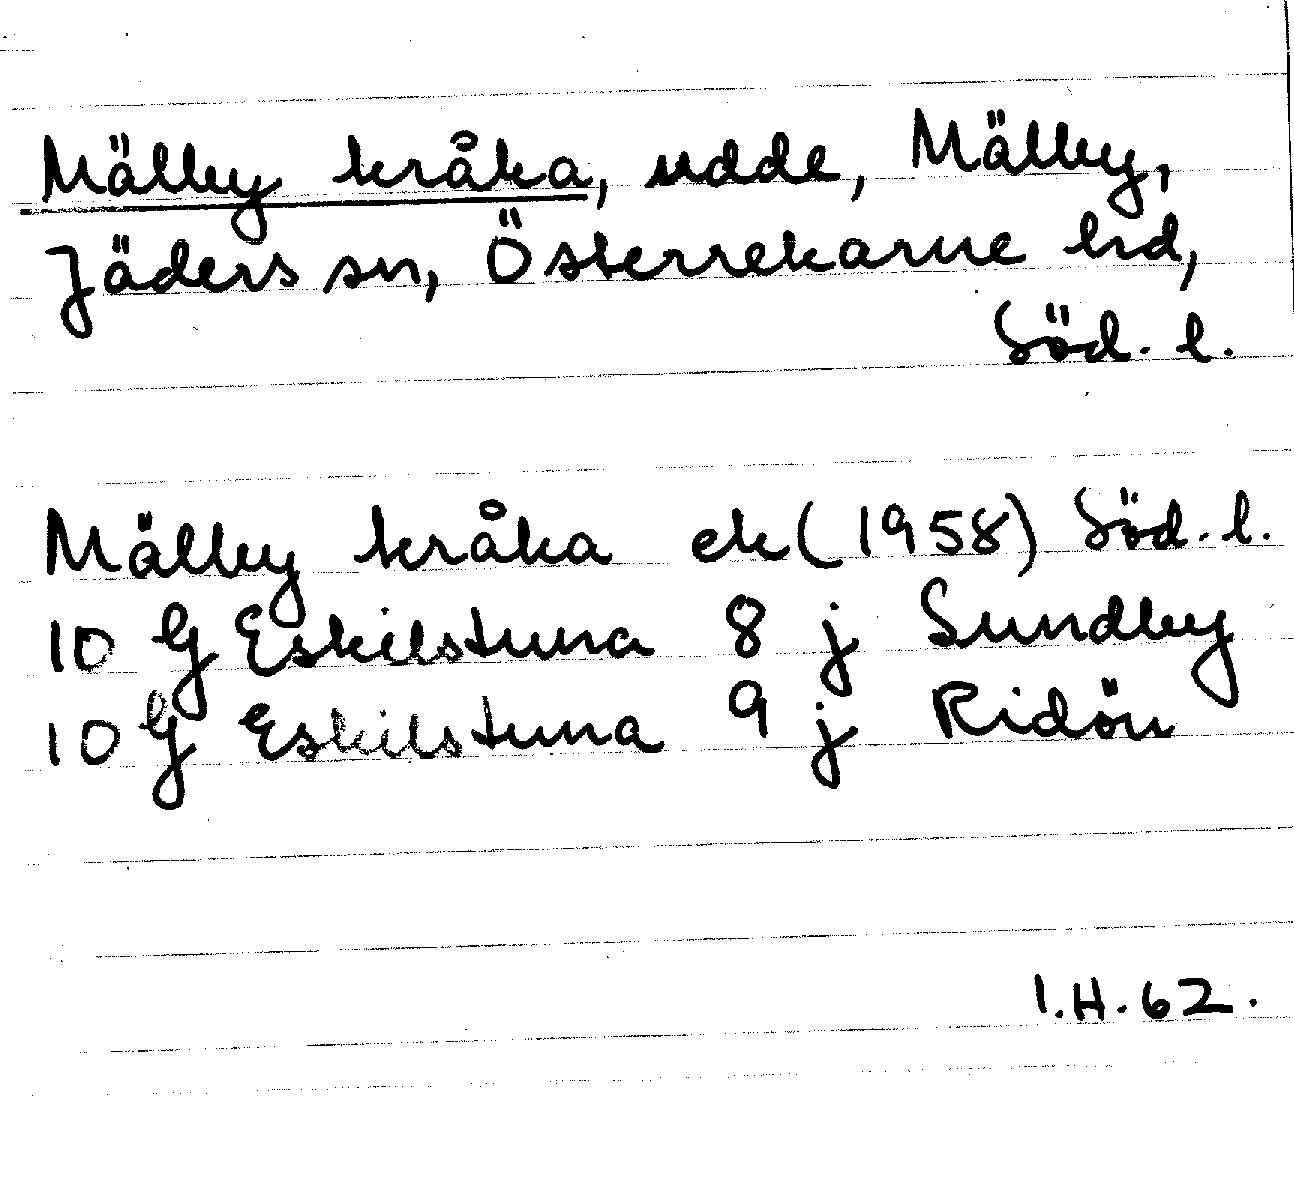 Mälby kråka, udde, Mälby,
Jäders sn, Österrekarne hd,
Söd. l.
Mälby kråka ek (1958) Söd. l.
10 G Eskilstuna 8 j Sundby
10 G Eskilstuna 9 j Ridön
I.H. 62.